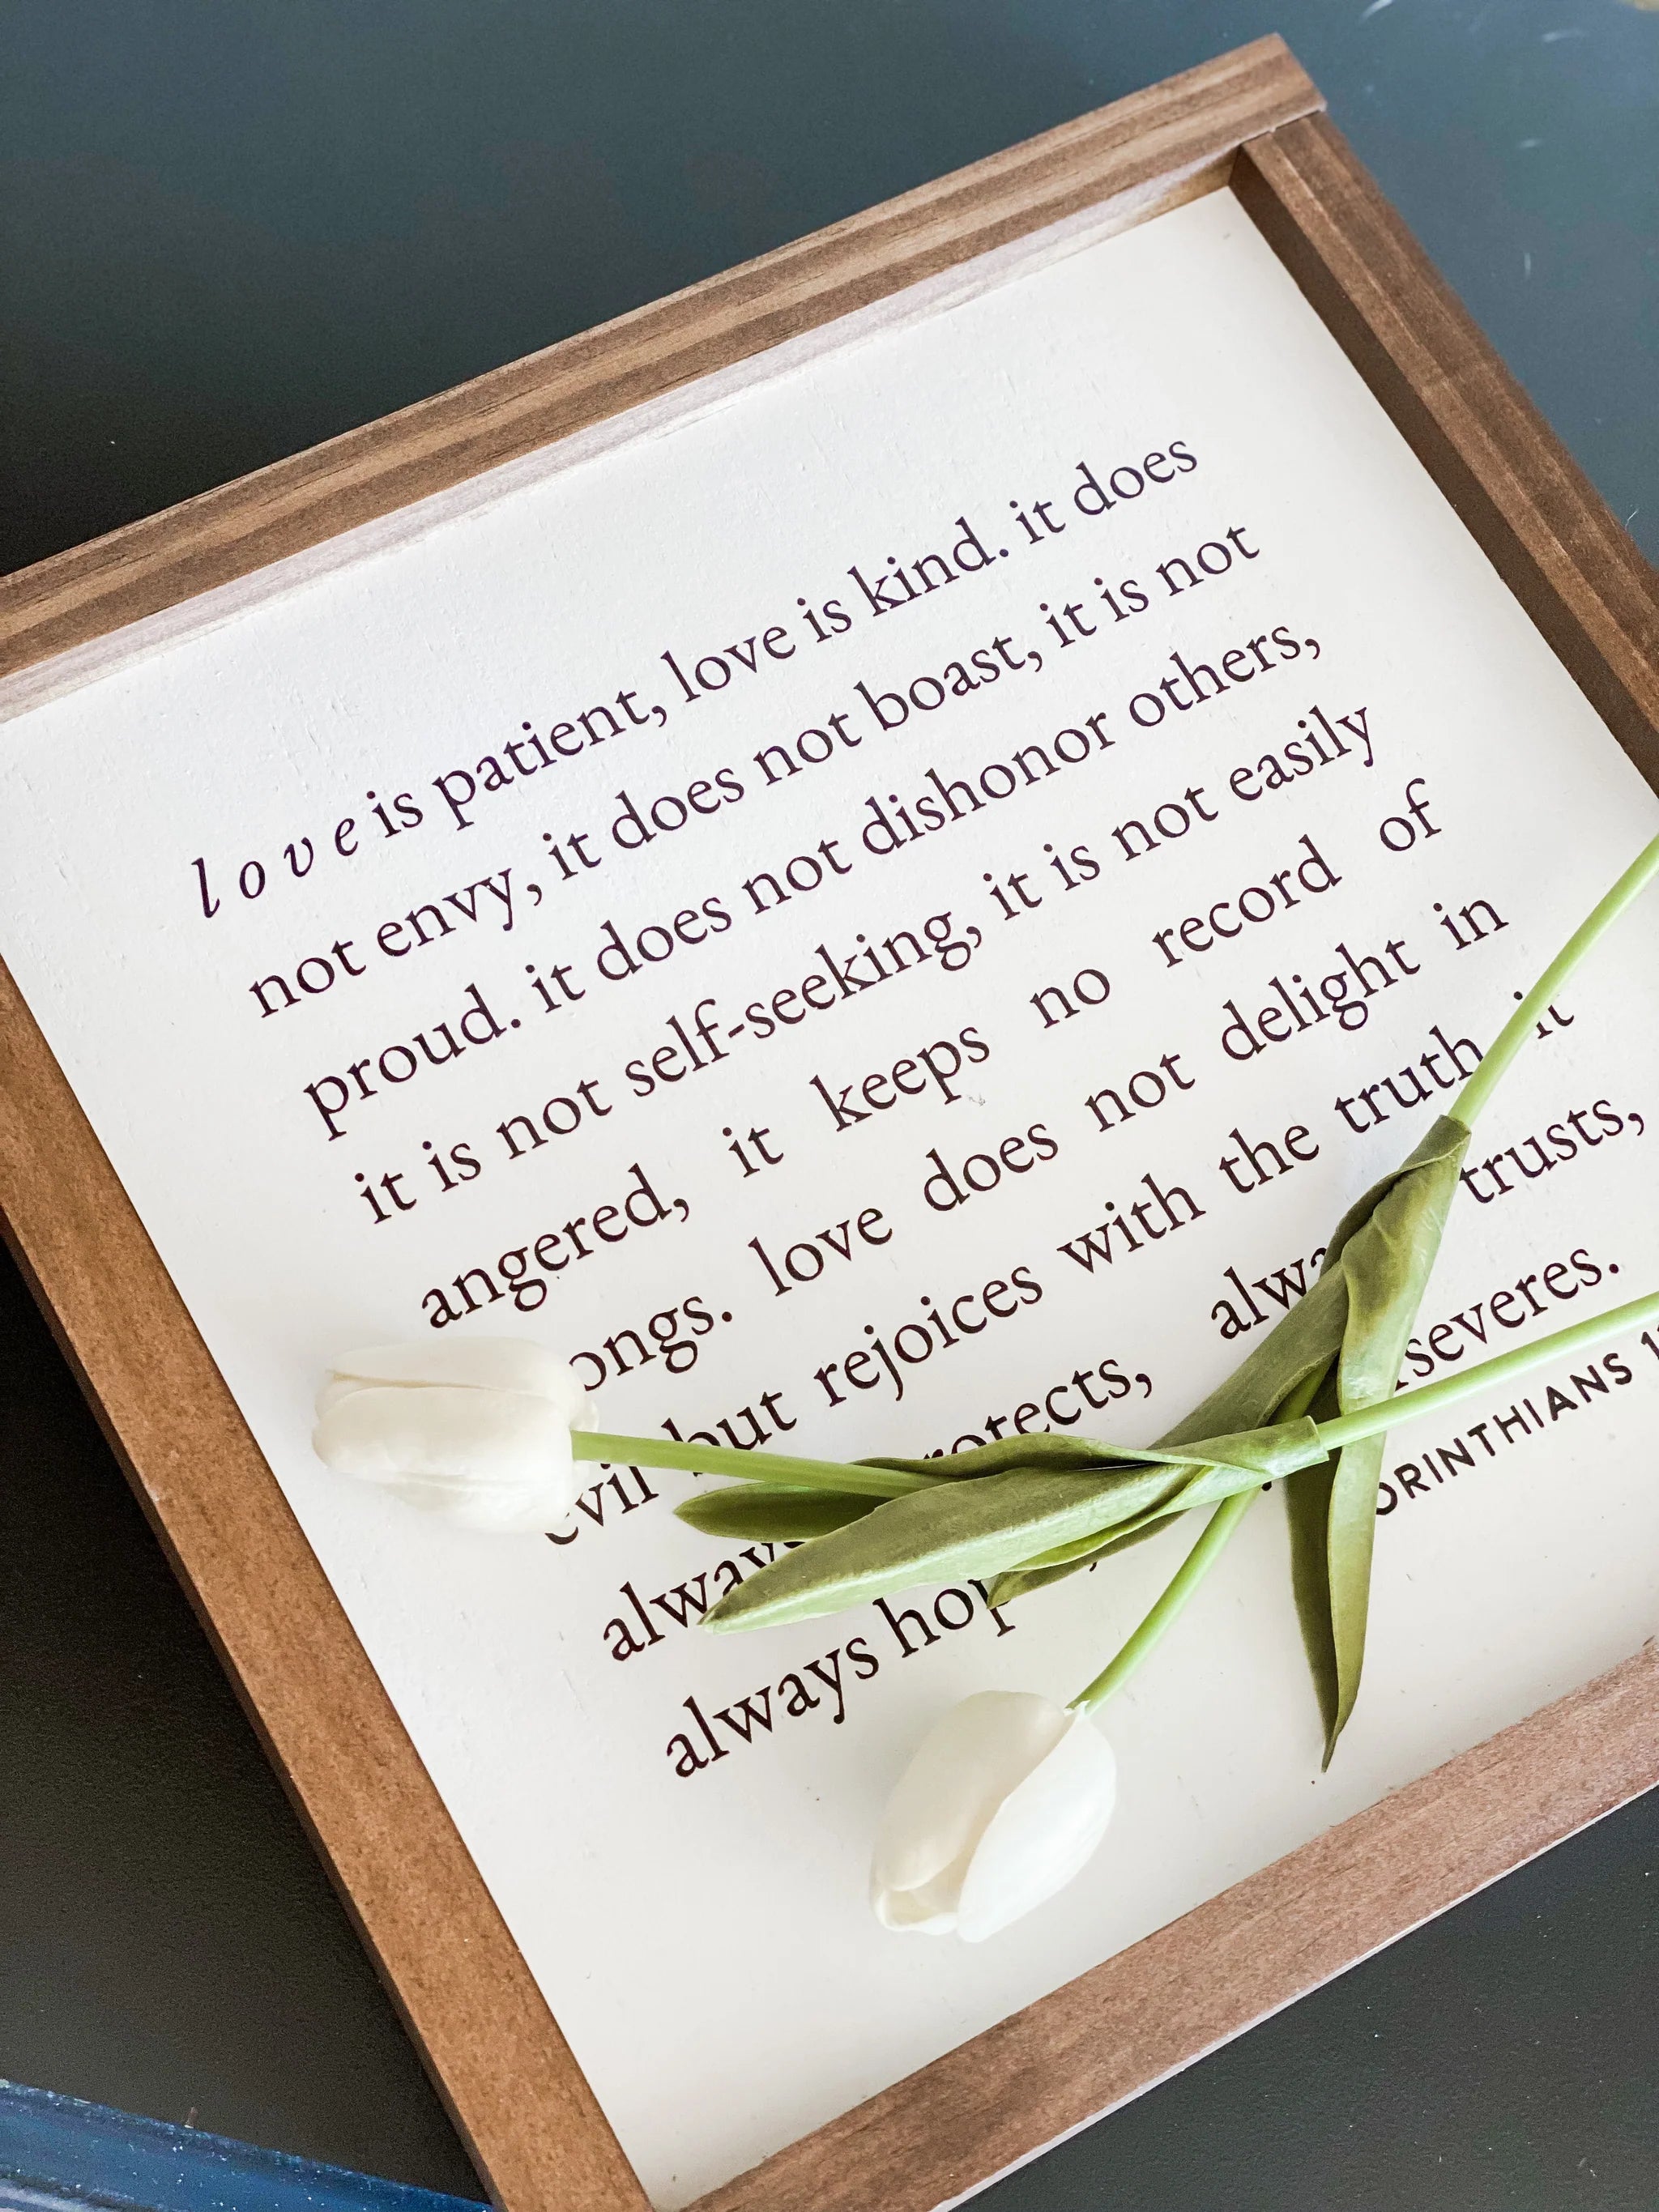 love is patient, love is kind. it does
not envy, it does not boast, it is not
proud. it does not dishonor others,
it is not self-seeking, it is not easily
angered, it keeps no record of
love does not delight in
evil but rejoices with the truth it
always trusts,
always